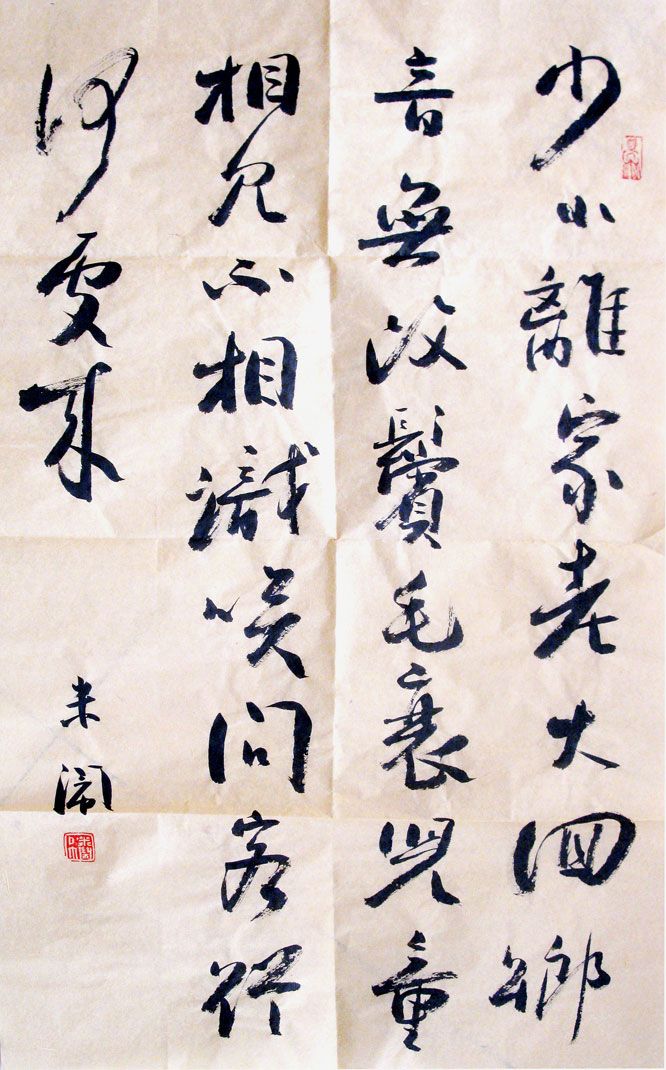 少小離家老大回鄉
音無改鬢毛衰兒童
相見不相識咲問客從
何處來
米闹